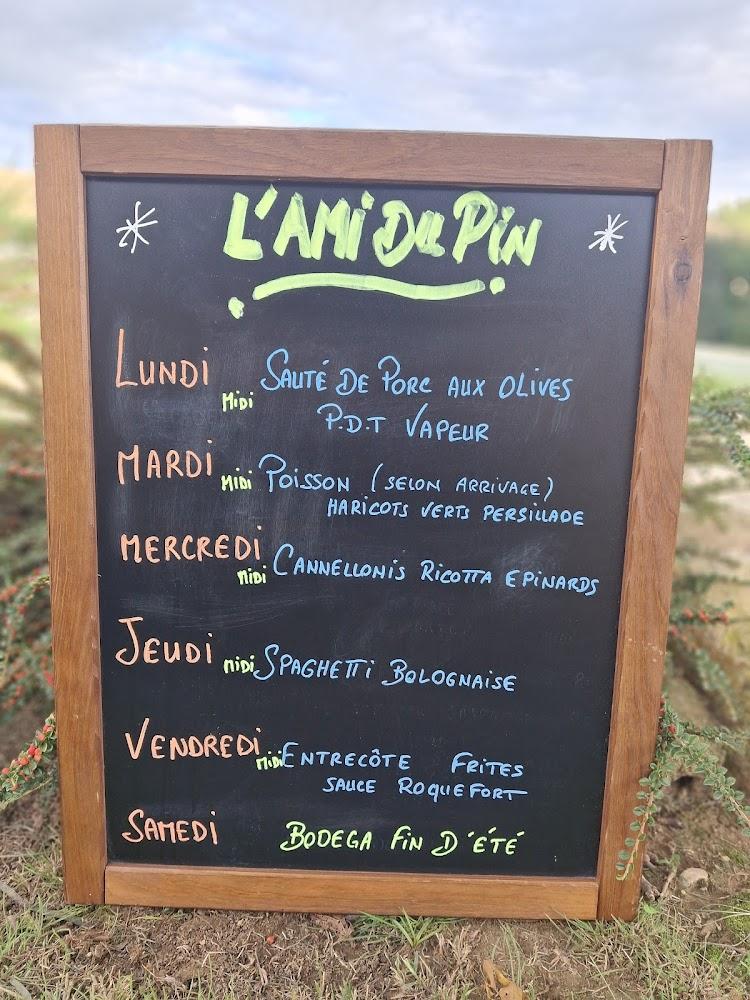 L'AMI DU PIN
LUNDI MIDI SAUTÉ DE PORC AUX OLIVES
P.D.T VAPEUR
MARDI MIDI POISSON (SELON ARRIVAGE)
HARICOTS VERTS PERSILLADE
MERCREDI MIDI CANNELLONIS RICOTTA EPINARDS
JEUDI MIDI SPAGHETTI BOLOGNAISE
VENDREDI MIDI ENTRECÔTE FRITES
SAUCE ROQUEFORT
SAMEDI BODEGA FIN D'ÉTÉ